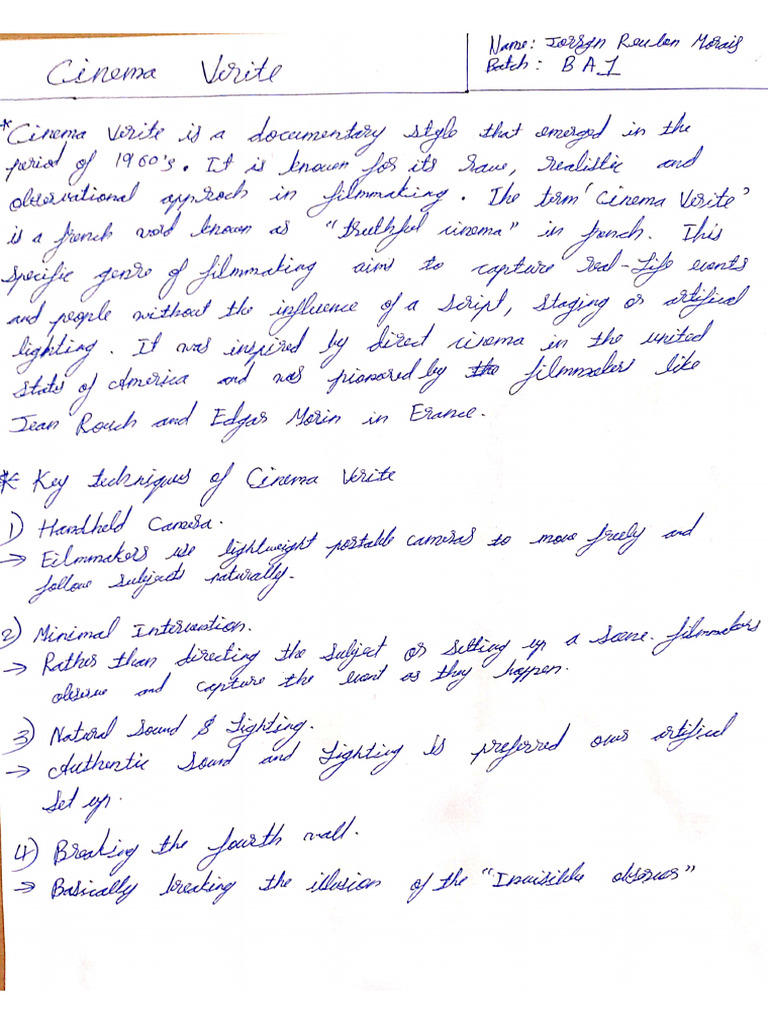 Cinema Verite
Name: Jorsyn Reuben Morais
Batch: BA1
* Cinema Verite is a documentary style that emerged in the
period of 1960's. It is known for its raw, realistic and
observational approch in filmmaking. The term 'Cinema Verite'
is a french word known as "truthful cinema" in french. This
specific genre of filmmaking aims to capture real-Life events
and people without the influence of a script, staging or artifical
lighting. It was inspired by direct cinema in the united
state of America and was pionored by the filmmakers like
Jean Rouch and Edgar Morin in France.
* Key techniques of Cinema Verite
1) Handheld Camera.
→ Filmmakers use lightweight portable cameras to move freely and
follow subjects naturally.
2) Minimal Intervention.
→ Rather than directing the subject or setting up a scene. filmmakers
observe and capture the event as they happen.
3) Natural Sound & Lighting.
→ Authentic sound and Lighting is preferred over artifical
set up.
4) Breaking the fourth wall.
→ Basically breaking the illusion of the "Invisible observer"